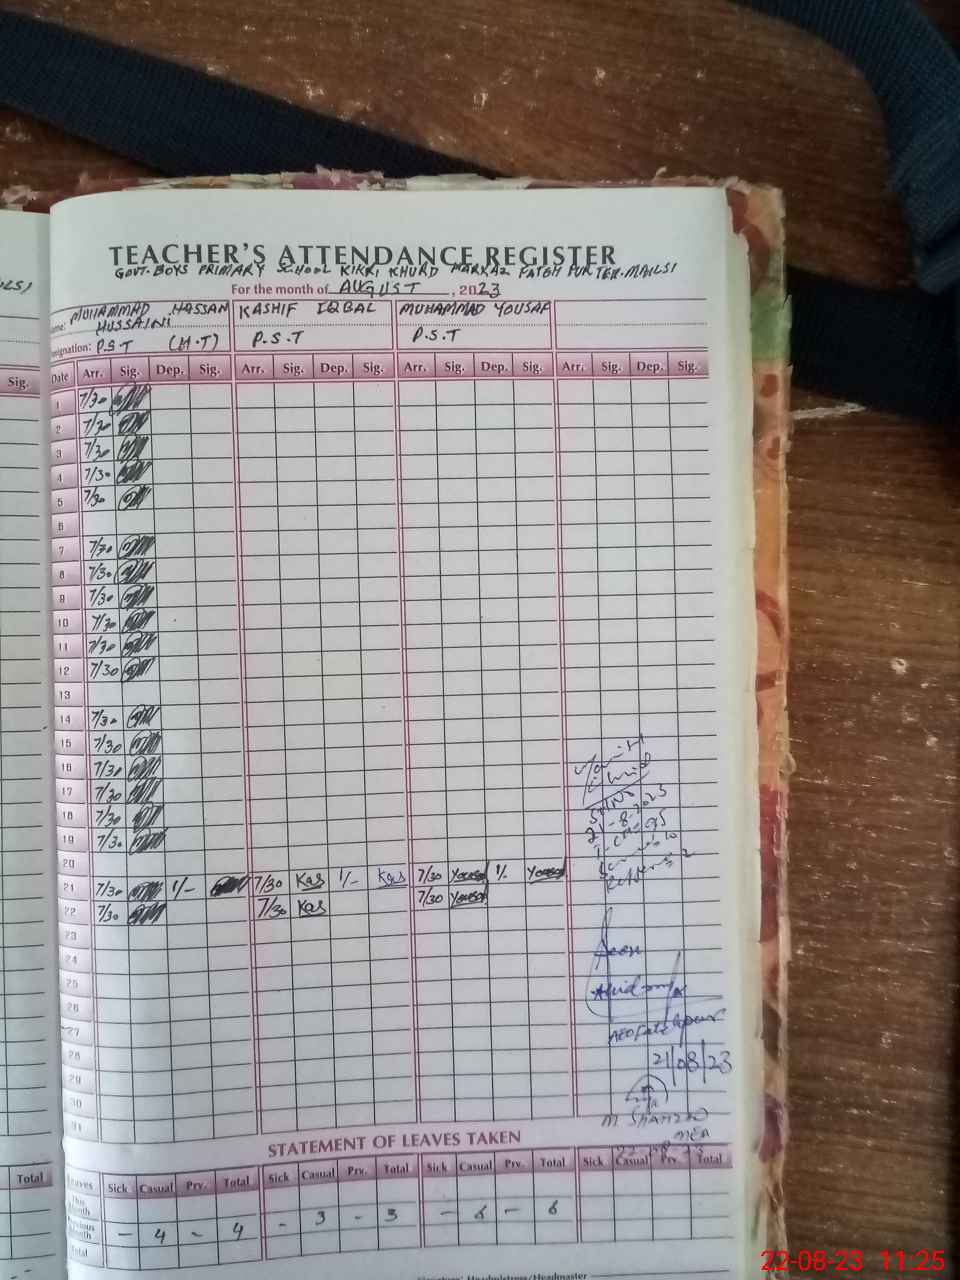 TEACHER'S ATTENDANCE REGISTER
GOVT. BOYS PRIMARY SCHOOL KIKRI KHURD MARKAZ FATEH PUR TEH. MAILSI
For the month of AUGUST , 2023
Name: MUHAMMAD HASSAN HUSSAINI KASHIF IQBAL MUHAMMAD YOUSAF
Designation: P.S.T (H.T) P.S.T P.S.T
Sig. Date Arr. Sig. Dep. Sig. Arr. Sig. Dep. Sig. Arr. Sig. Dep. Sig. Arr. Sig. Dep. Sig.
1 7/30
2 7/30
3 7/30
4 7/30
5 7/30
6
7 7/30
8 7/30
9 7/30
10 7/30
11 7/30
12 7/30
13
14 7/30
15 7/30
16 7/30
17 7/30
18 7/30
19 7/30
20
21 7/30 1/- 7/30 Kas 1/- Kas 7/30 Yousaf 1/- Yousaf
22 7/30 7/30 Kas 7/30 Yousaf
23
24
25
26
27
28
29
30
31
21/08/23
M SHAHZAD
MEA
22-08-23
STATEMENT OF LEAVES TAKEN
Total Leaves Sick Casual Prv. Total Sick Casual Prv. Total Sick Casual Prv. Total Sick Casual Prv. Total
This Month
Previous Month - 4 - 4 - 3 - 3 - 6 - 6
Total
Headmistress/Headmaster
22-08-23 11:25